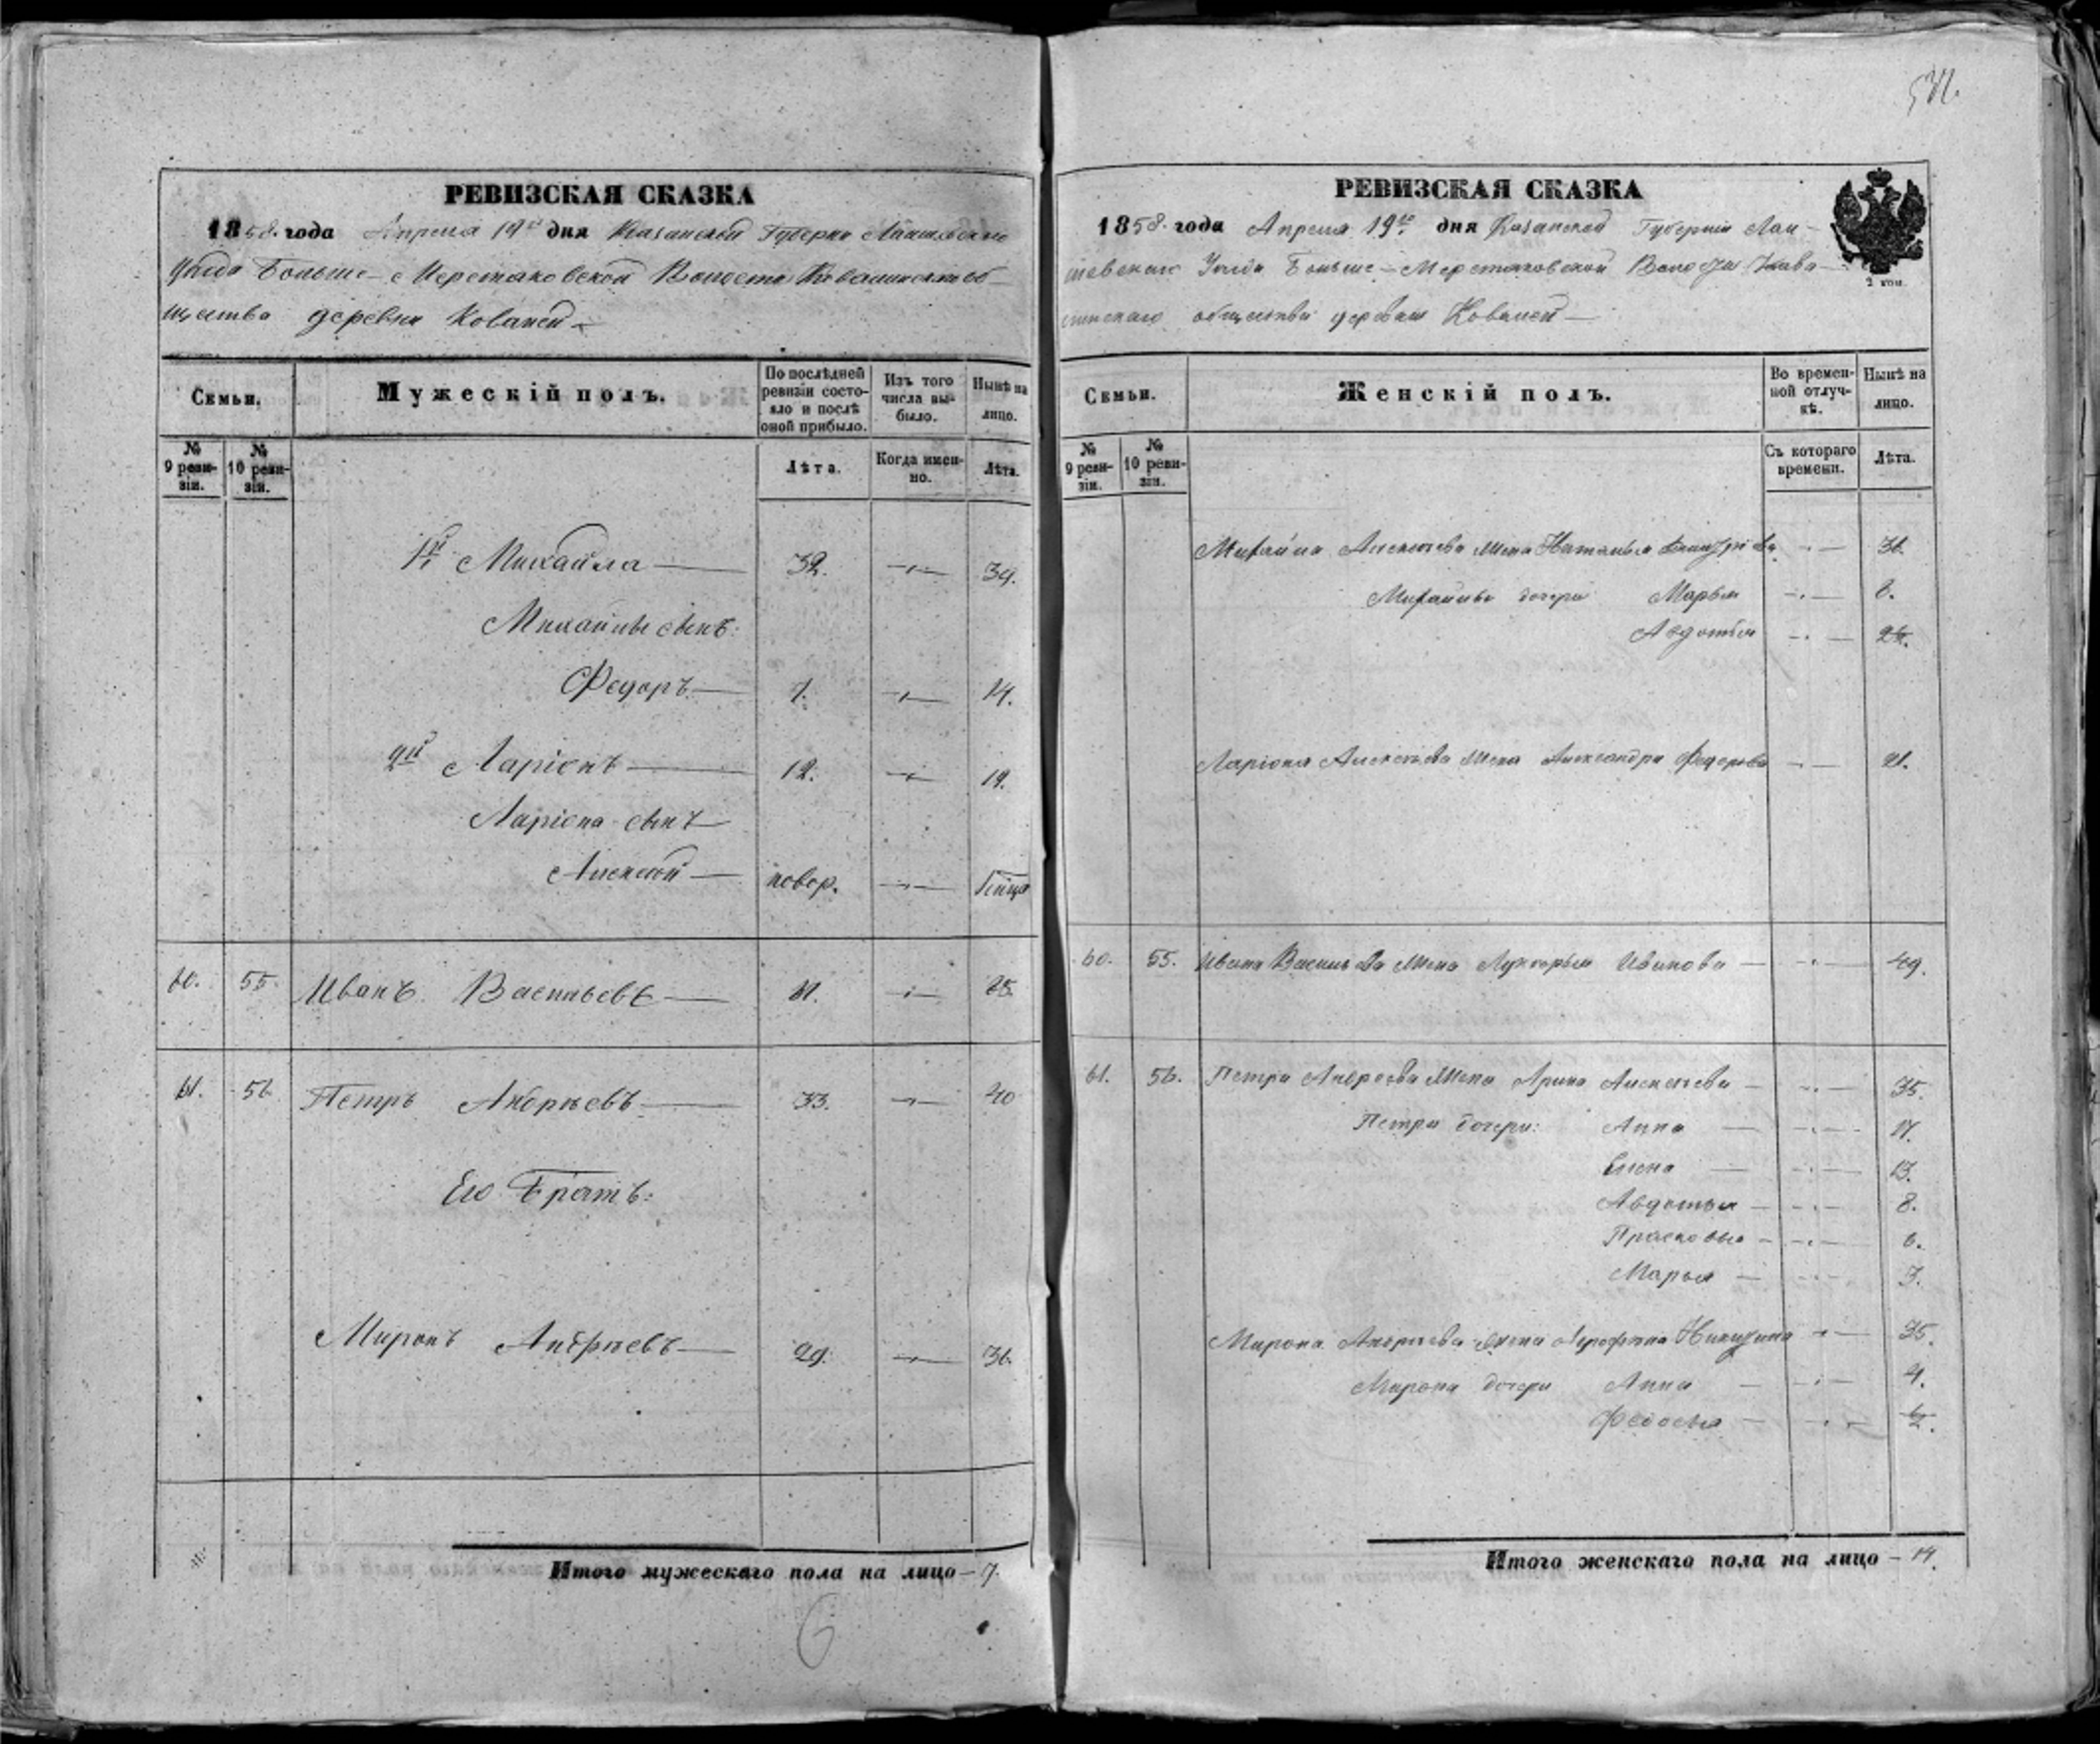 РЕВИЗСКАЯ СКАЗКА
1858. года Апреля 19го дня Казанской Губерніи Лаишевскаго
Уѣзда Больше-Меретяковской Волости
щества деревни Ковалей
Семьи.
Мужескій полъ.
По послѣдней ревизіи состояло и послѣ оной прибыло.
Изъ того числа выбыло.
Нынѣ на лицо.
№ 9 ревизіи.
№ 10 ревизіи.
Лѣта.
Когда именно.
Лѣта.
1й Михайла — 32. —„— 39.
Михайлы сынъ:
Федоръ — 7. —„— 14.
2й Ларіонъ — 12. —„— 19.
Ларіона сынъ
Алексей — новор. —„—
60. 55. Иванъ Васильевъ — —„—
61. 56. Петръ Андреевъ — 33. —„— 40
Его Братъ:
Миронъ Андреевъ — 29. —„— 36.
Итого мужескаго пола на лицо — 7.
6
РЕВИЗСКАЯ СКАЗКА
1858. года Апреля 19го дня Казанской Губерніи Лаи-
шевскаго Уѣзда Больше-Меретяковской Волости Кава-
линскаго общества деревни Ковалей —
2 коп.
Семьи.
Женскій полъ.
Во временной отлучкѣ.
Нынѣ на лицо.
№ 9 ревизіи.
№ 10 ревизіи.
Съ котораго времени.
Лѣта.
Михайла Алексѣева жена Наталья Дмитріева —„— 36.
Михайлы дочери Марья —„— 8.
Авдотья —„—
Ларіона Алексѣева жена Александра Федорова —„— 21.
60. 55. Ивана Васильева жена Лукерья Иванова — —„— 49.
61. 56. Петра Андреева жена Арина Алексѣева — —„— 35.
Петра дочери: Анна — —„— 17.
Елена — —„— 13.
Авдотья — —„— 8.
Прасковья — —„— 6.
Марья — —„— 3.
Мирона Андреева жена Никитина —„— 35.
Мирона дочери Анна — —„— 4.
Федосья — —„—
Итого женскаго пола на лицо — 14.